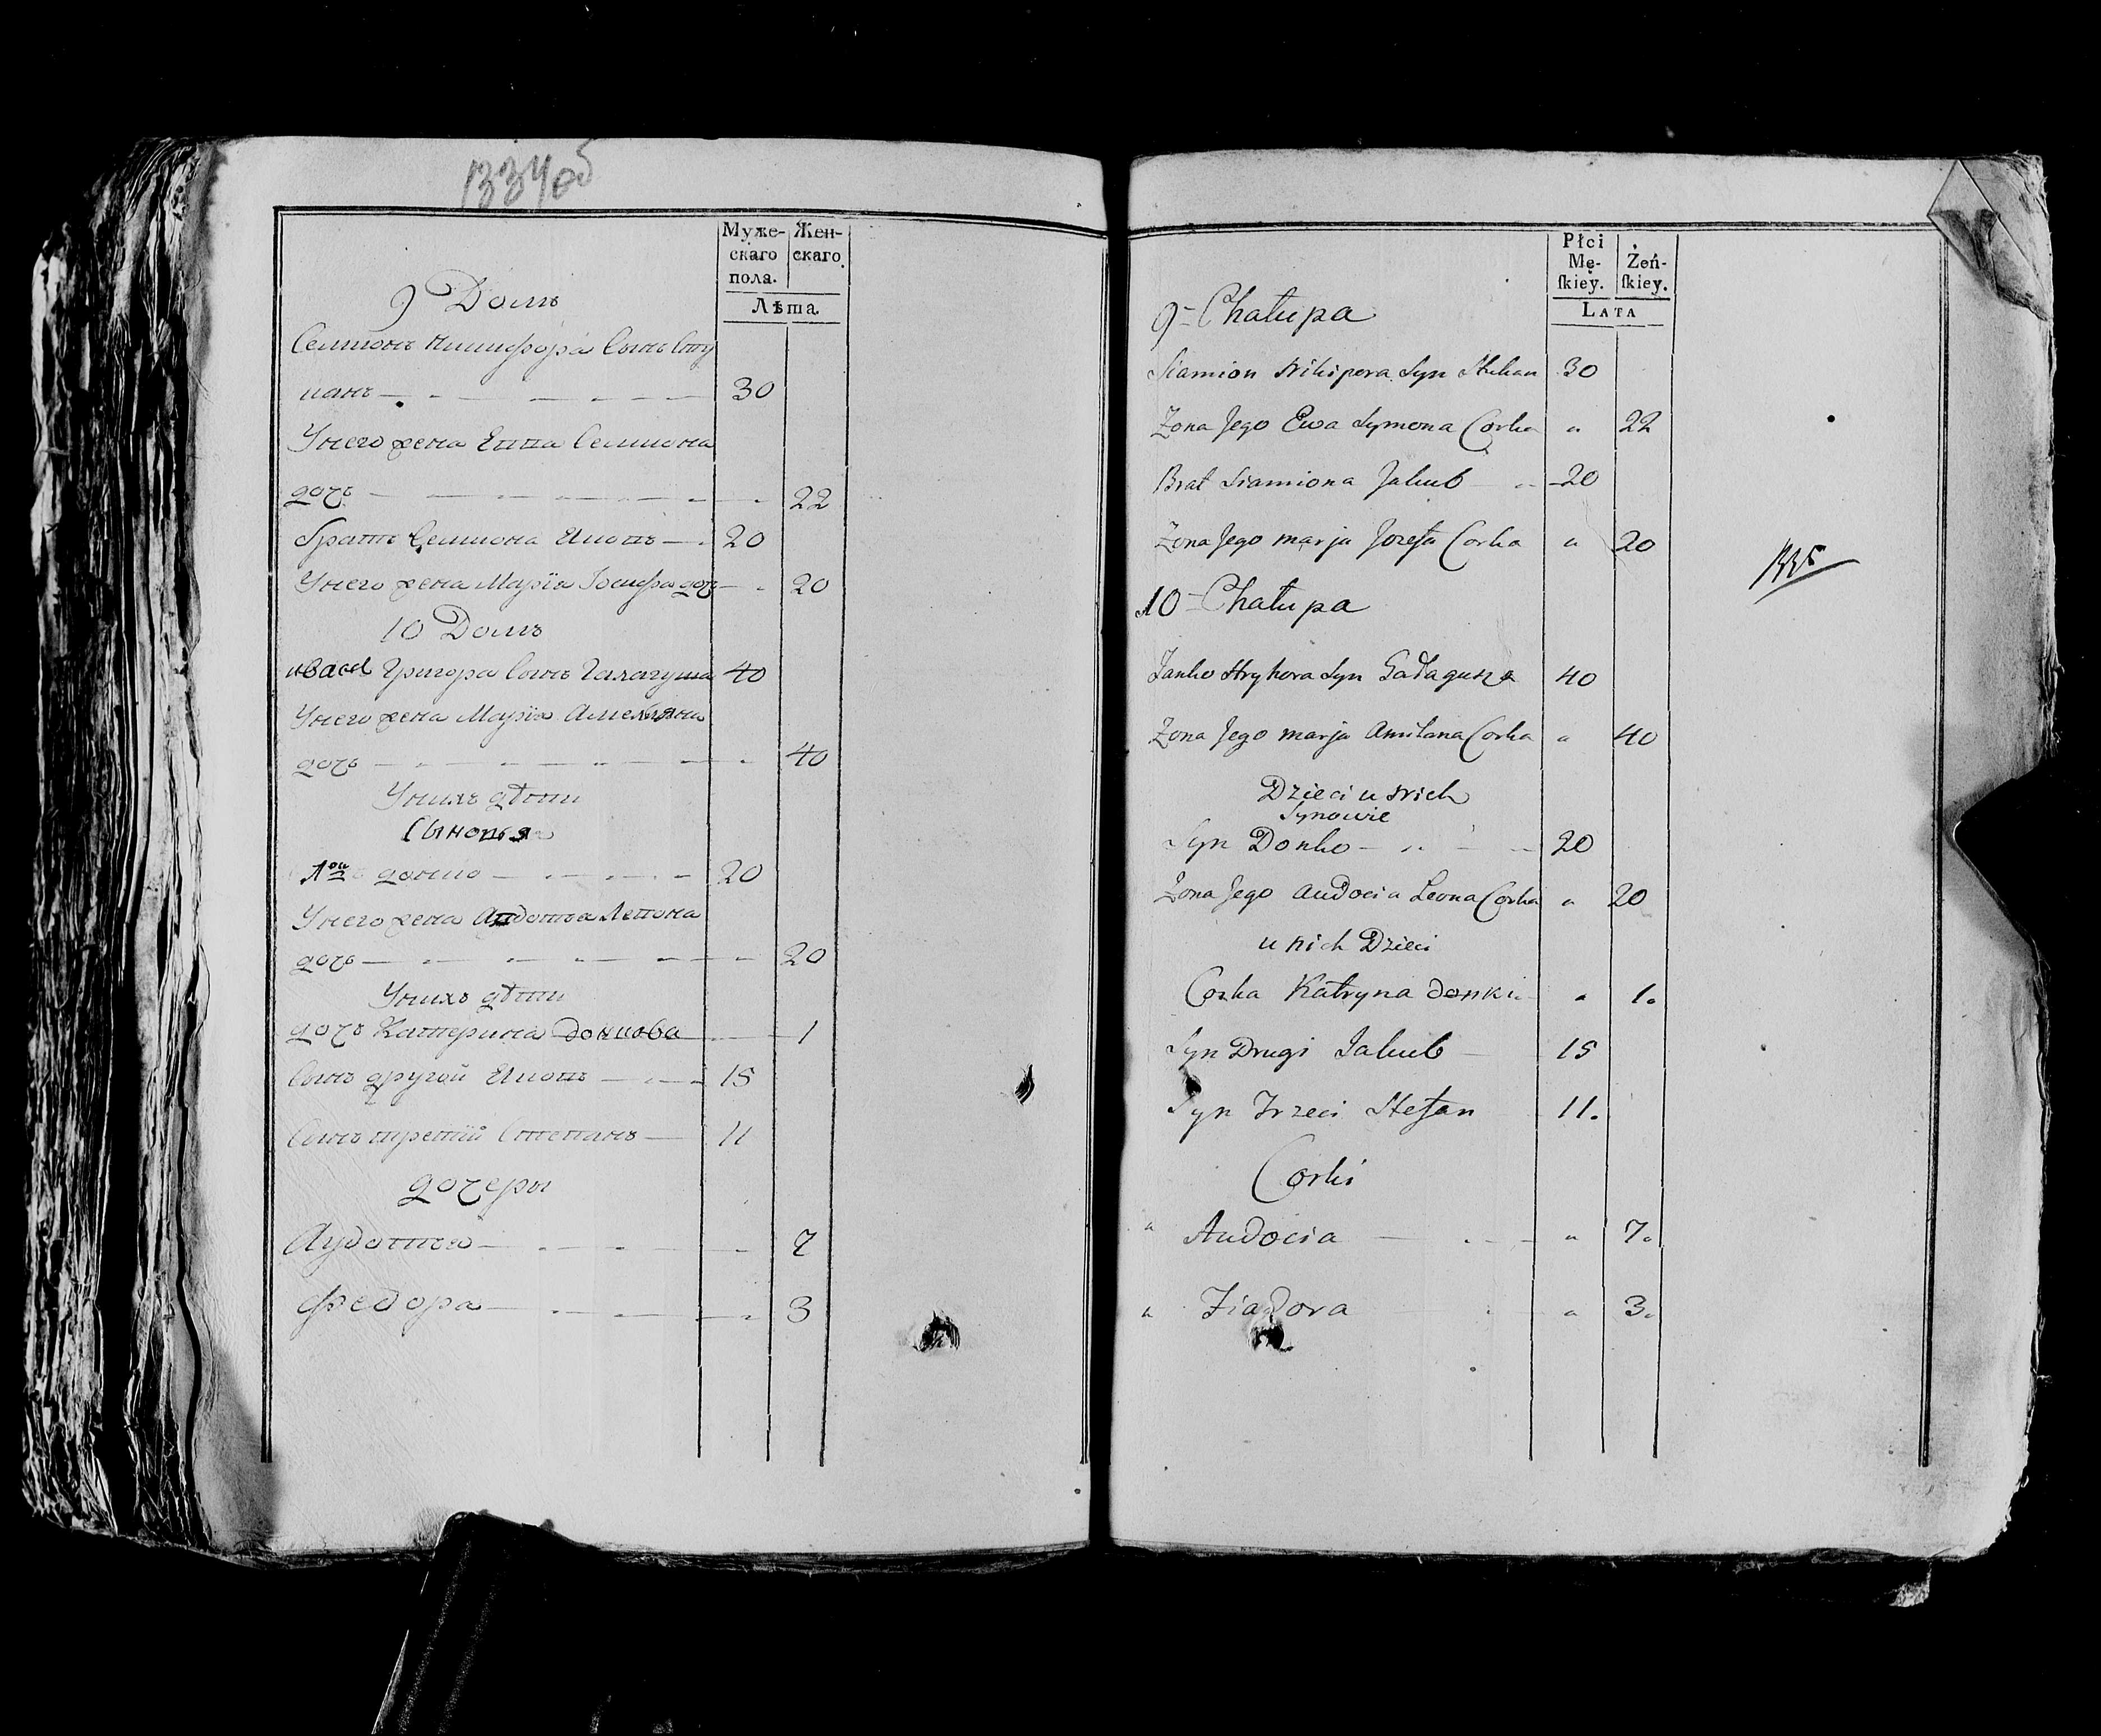 1334об
Муже-
скаго
пола.
Жен-
скаго.
Лѣта
9 Домъ
Семионъ Никифора Сынъ Сту
канъ 30
Унего жена Евва Семиона
дочь 22
братъ Семиона Якопъ 20
Унего жена Марїа Iосифа дочь 20
10 Домъ
Григора Сынъ Галагуша 40
Унего жена Марїа Амельяна
дочь 40
Унихъ дѣти
Сыновья
1ой донко 20
Унего жена Авдотьа Левона
дочь 20
Унихъ дѣти
дочь Катерина донкова 1
Сынъ другой Якопъ 15
Сынъ третiй Степанъ 11
дочеры
Аудотьа 7
Федора 3
Płci
Mę-
ſkiey.
Żeń-
ſkiey.
LATA
9 Chałupa
Siamion Nikipora Syn Stukan 30
Zona Jego Ewa Symona Corka " 22
Brat Siamiona Jakub 20
Zona Jego marja Jozefa Corka " 20
1335
10 Chałupa
Janko Hryhora Syn Gałagusza 40
Zona Jego marja Amilana Corka " 40
Dzieci u Nich
Synowie
Syn Donko 20
Zona Jego Audocia Leona Corka " 20
u Nich Dzieci
Corka Katryna donki " 1.
Syn Drugi Jakub 15
Syn Trzeci Stefan 11.
Corki
" Audocia " 7.
" Fiadora " 3.